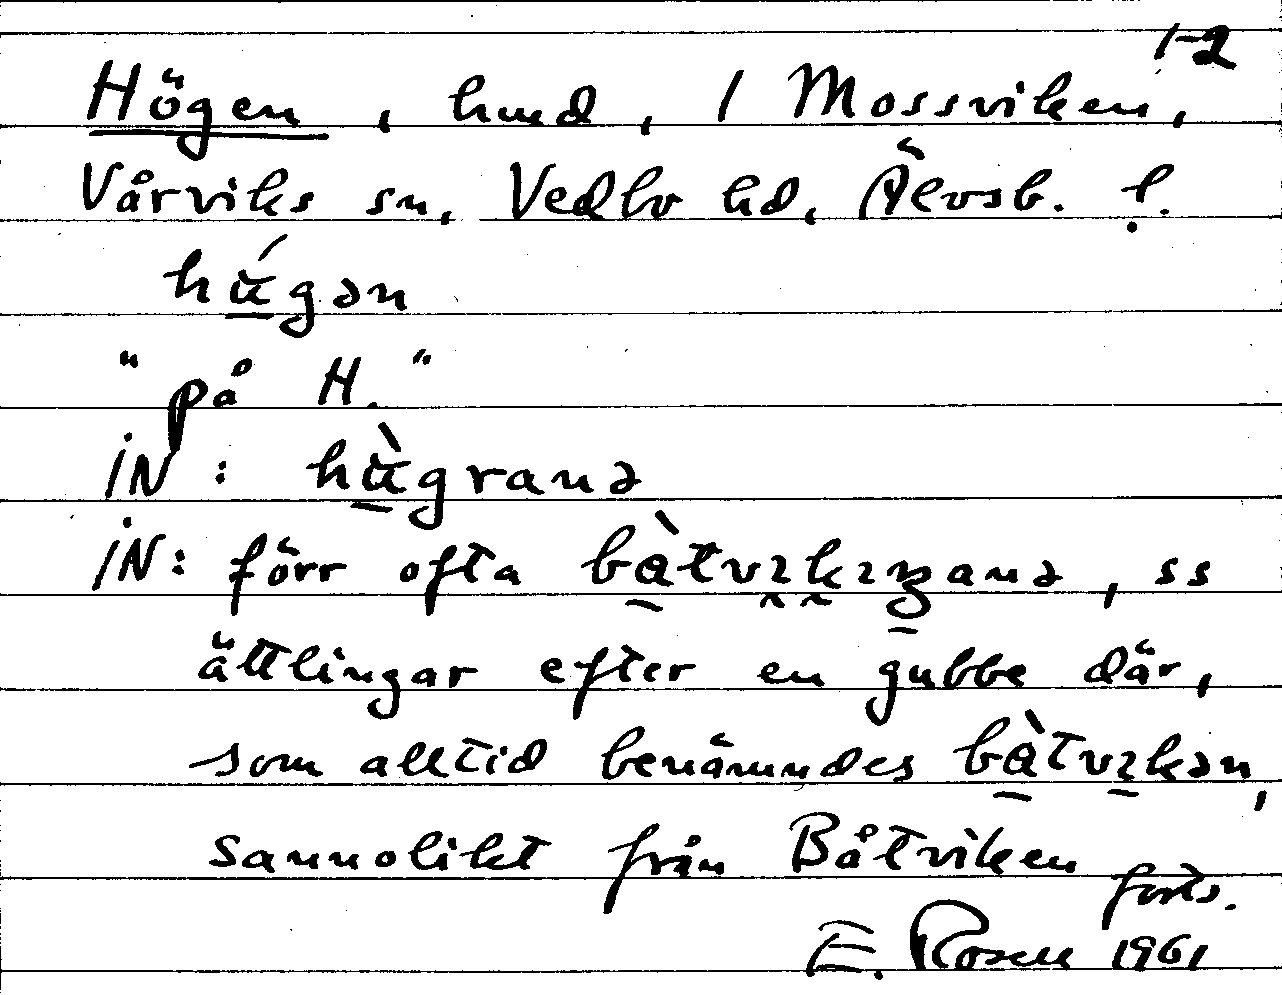 1-2
Högen, hmd, 1 Mossviken,
Vårviks sn, Vedbo hd, Älvsb. l.
hǘgən
"på H."
iN: hǜgranə
iN: förr ofta
, ss
ättlingar efter en gubbe där,
som alltid benämndes bàtvɪkən,
sannolikt från Båtviken
forts.
E. Rosell 1961